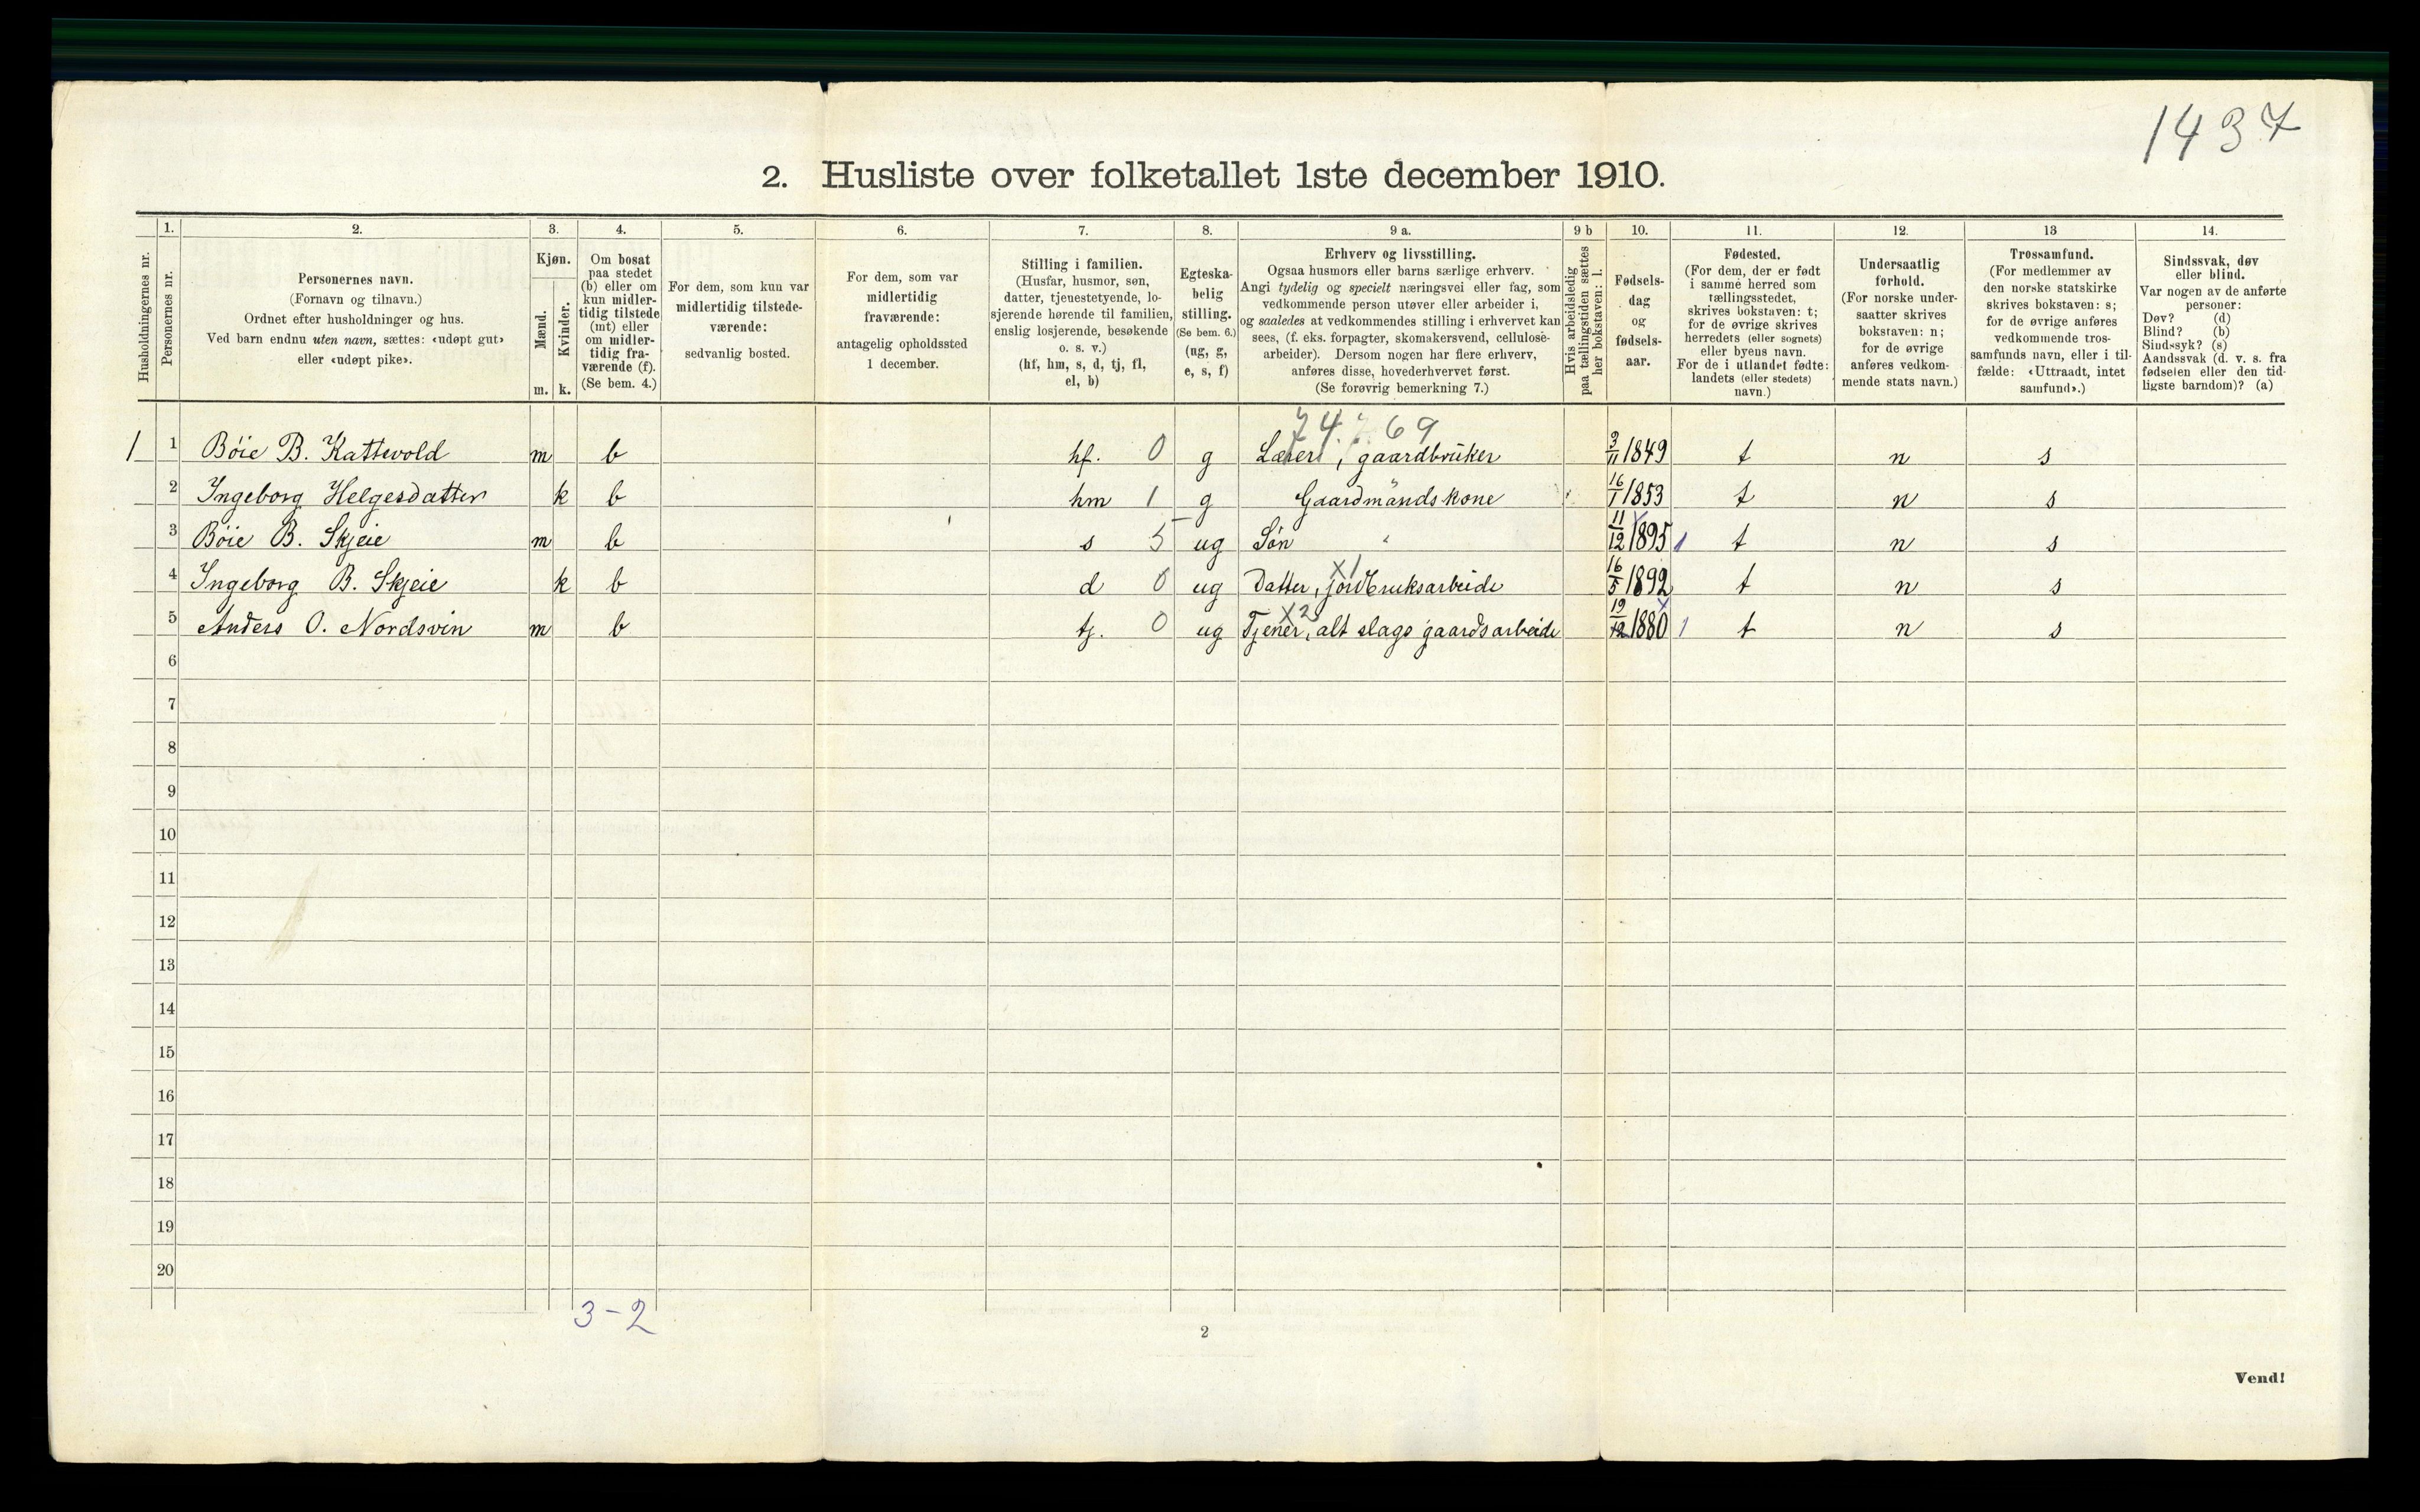 1437
2. Husliste over folketallet 1ste december 1910.
1. 2. 3. 4. 5. 6. 7. 8. 9 a. 9 b 10. 11. 12. 13 14.
Husholdningernes nr.
Personernes nr.
Personernes navn.
(Fornavn og tilnavn.)
Ordnet efter husholdninger og hus.
Ved barn endnu uten navn, sættes: «udøpt gut»
eller «udøpt pike».
Kjøn.
Mænd.
Kvinder.
m. k.
Om bosat
paa stedet
(b) eller om
kun midler-
tidig tilstede
(mt) eller
om midler-
tidig fra-
værende (f).
(Se bem. 4.)
For dem, som kun var
midlertidig tilstede-
værende:
sedvanlig bosted.
For dem, som var
midlertidig
fraværende:
antagelig opholdssted
1 december.
Stilling i familien.
(Husfar, husmor, søn,
datter, tjenestetyende, lo-
sjerende hørende til familien,
enslig losjerende, besøkende
o. s. v.)
(hf, hm, s, d, tj, fl,
el, b)
Egteska-
belig
stilling.
(Se bem. 6.)
(ug, g,
e, s, f)
Erhverv og livsstilling.
Ogsaa husmors eller barns særlige erhverv.
Angi tydelig og specielt næringsvei eller fag, som
vedkommende person utøver eller arbeider i,
og saaledes at vedkommendes stilling i erhvervet kan
sees, (f. eks. forpagter, skomakersvend, cellulose-
arbeider). Dersom nogen har flere erhverv,
anføres disse, hovederhvervet først.
(Se forøvrig bemerkning 7.)
Hvis arbeidsledig
paa tællingstiden sættes
her bokstaven: l.
Fødsels-
dag
og
fødsels-
aar.
Fødested.
(For dem, der er født
i samme herred som
tællingsstedet,
skrives bokstaven: t;
for de øvrige skrives
herredets (eller sognets)
eller byens navn.
For de i utlandet fødte:
landets (eller stedets)
navn.)
Undersaatlig
forhold.
(For norske under-
saatter skrives
bokstaven: n;
for de øvrige
anføres vedkom-
mende stats navn.)
Trossamfund.
(For medlemmer av
den norske statskirke
skrives bokstaven: s;
for de øvrige anføres
vedkommende tros-
samfunds navn, eller i til-
fælde: «Uttraadt, intet
samfund».)
Sindssvak, døv
eller blind.
Var nogen av de anførte
personer:
Døv? (d)
Blind? (b)
Sindssyk? (s)
Aandssvak (d. v. s. fra
fødselen eller den tid-
ligste barndom)? (a)
1 1 Bøie B. Kattevold m b hf. 0 g Lærer, gaardbruker 3/11 1849 t n s
2 Ingeborg Helgesdatter k b hm 1 g Gaardmandskone 16/1 1853 t n s
3 Bøie B. Skjeie m b s 5 ug Søn 11/12 1895 1 t n s
X1
4 Ingeborg B. Skjeie k b d 0 ug Datter, jordbruksarbeide 16/5 1892 t n s
X2
5 Anders O. Nordsvin m b tj. 0 ug Tjener, alt slags gaardsarbeide 19/12 1880 1 t n s
6
7
8
9
10
11
12
13
14
15
16
17
18
19
20
3-2
2
Vend!